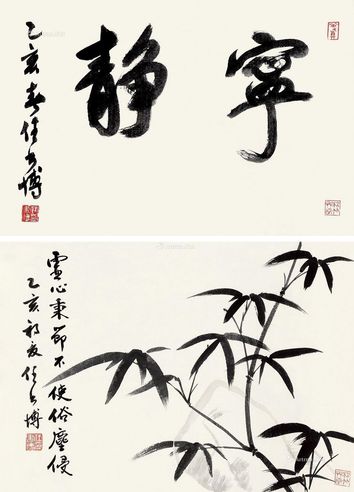 寧靜
乙亥春任書博
虛心秉節不使俗塵侵
乙亥初夏任書博